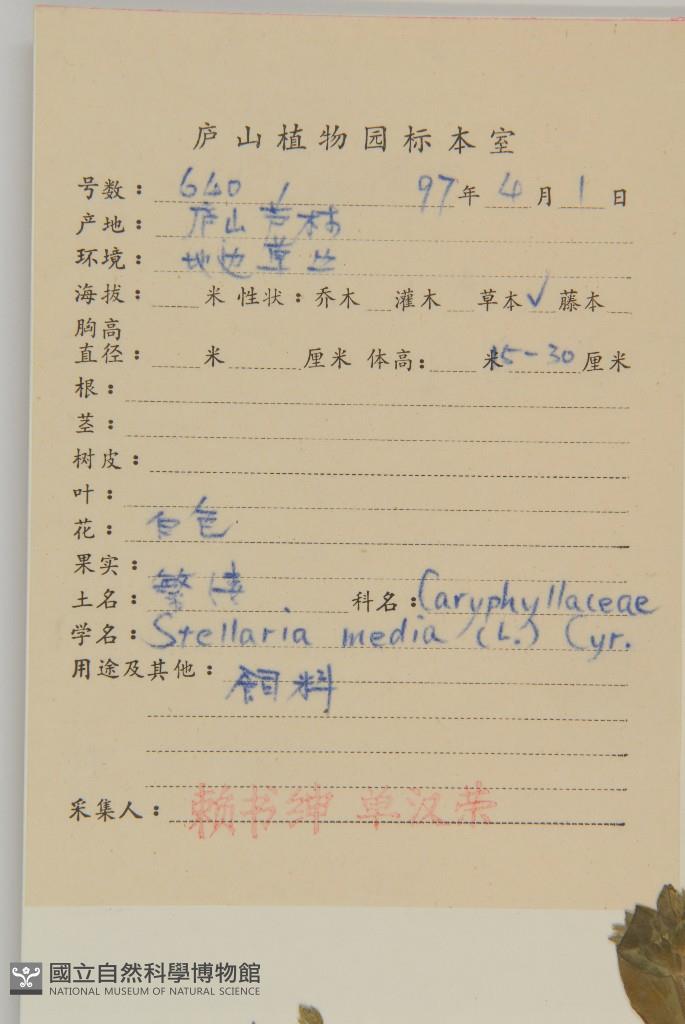 庐山植物园标本室
号数： 640 97年 4月 1日
产地： 庐山芦林
环境： 地边草丛
海拔： 米 性状：乔木 灌木 草本✓ 藤本
胸高
直径： 米 厘米 体高： 米15-30厘米
根：
茎：
树皮：
叶：
花： 白色
果实：
土名： 繁缕 科名：Caryphyllaceae
学名： Stellaria media (L.) Cyr.
用途及其他： 饲料
采集人： 赖书绅 单汉荣
國立自然科學博物館
NATIONAL MUSEUM OF NATURAL SCIENCE